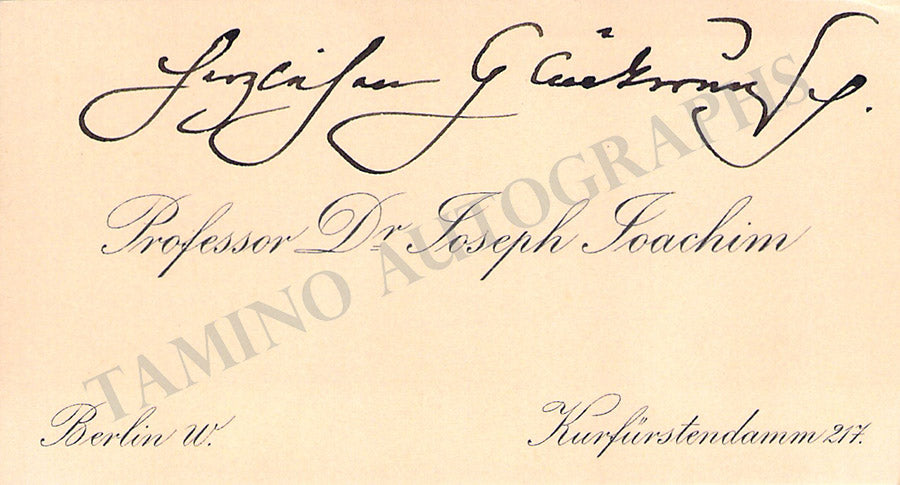 Herzlichen Glückwunsch.
Professor Dr. Joseph Joachim
Berlin W.
Kurfürstendamm 217.
TAMINO AUTOGRAPHS